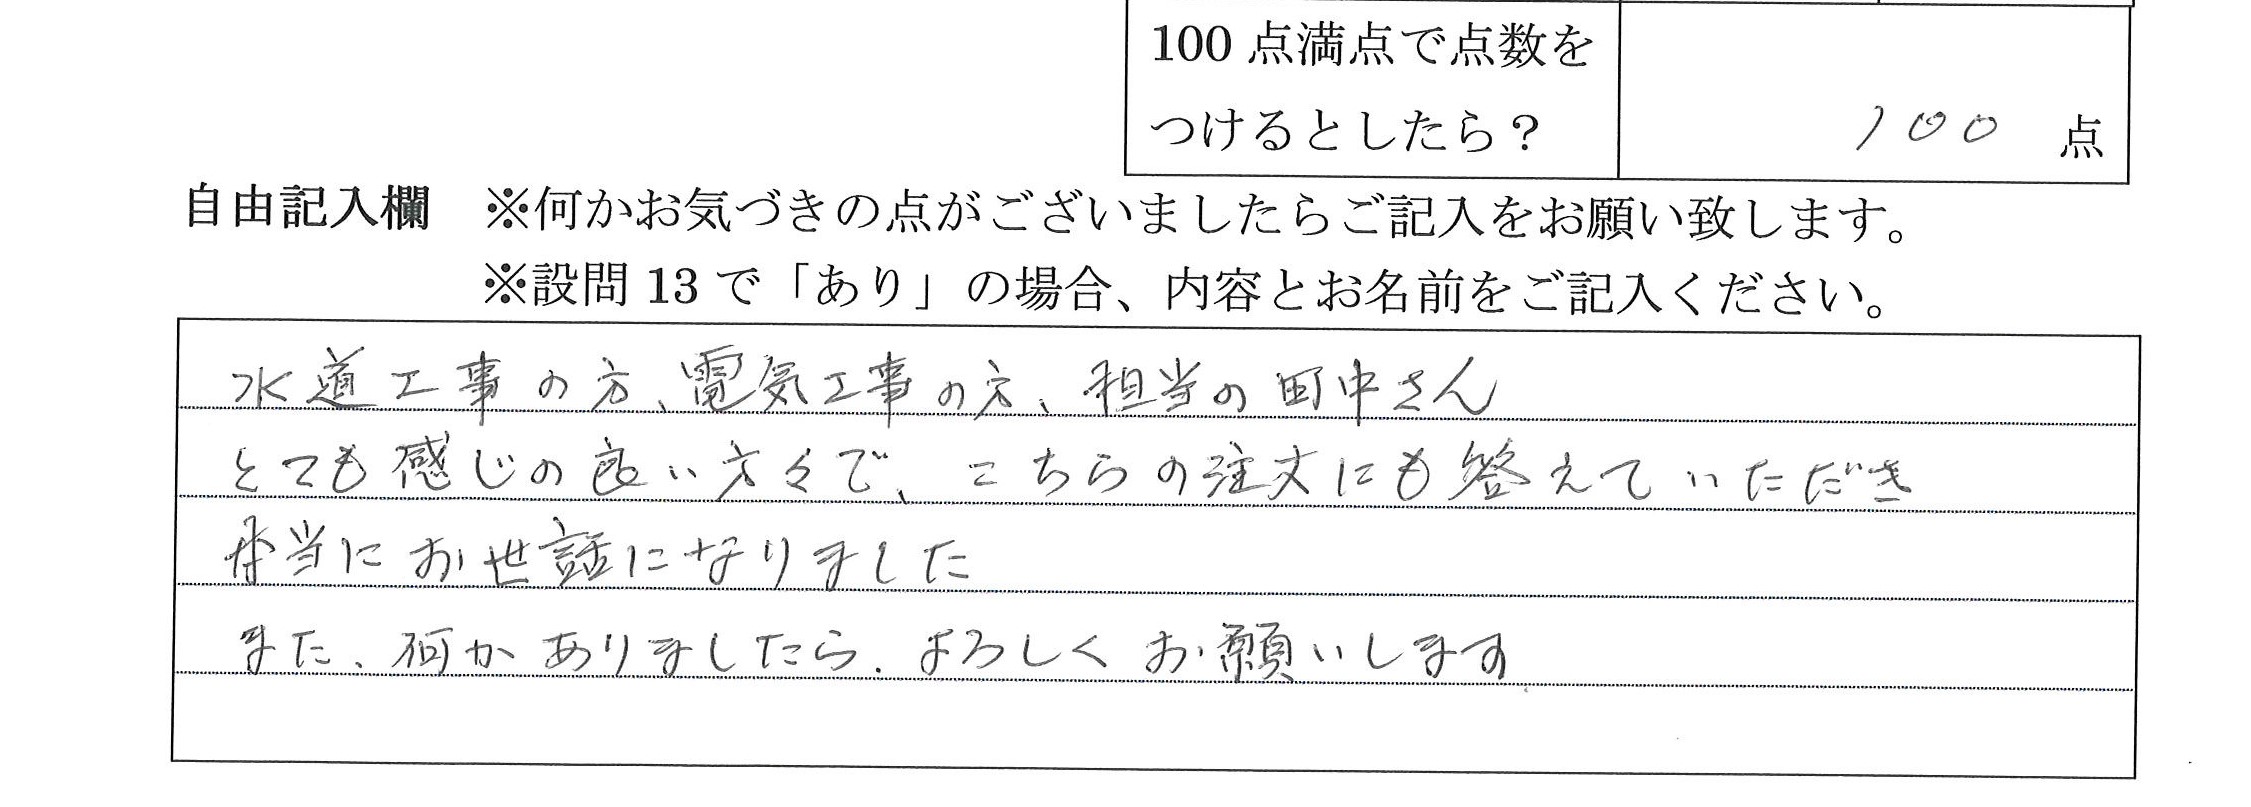 100点満点で点数を
つけるとしたら?
100 点
自由記入欄 ※何かお気づきの点がございましたらご記入をお願い致します。
※設問13で「あり」の場合、内容とお名前をご記入ください。
水道工事の方、電気工事の方、担当の田中さん
とても感じの良い方々で、こちらの注文にも答えていただき
本当にお世話になりました
また、何かありましたら、よろしくお願いします